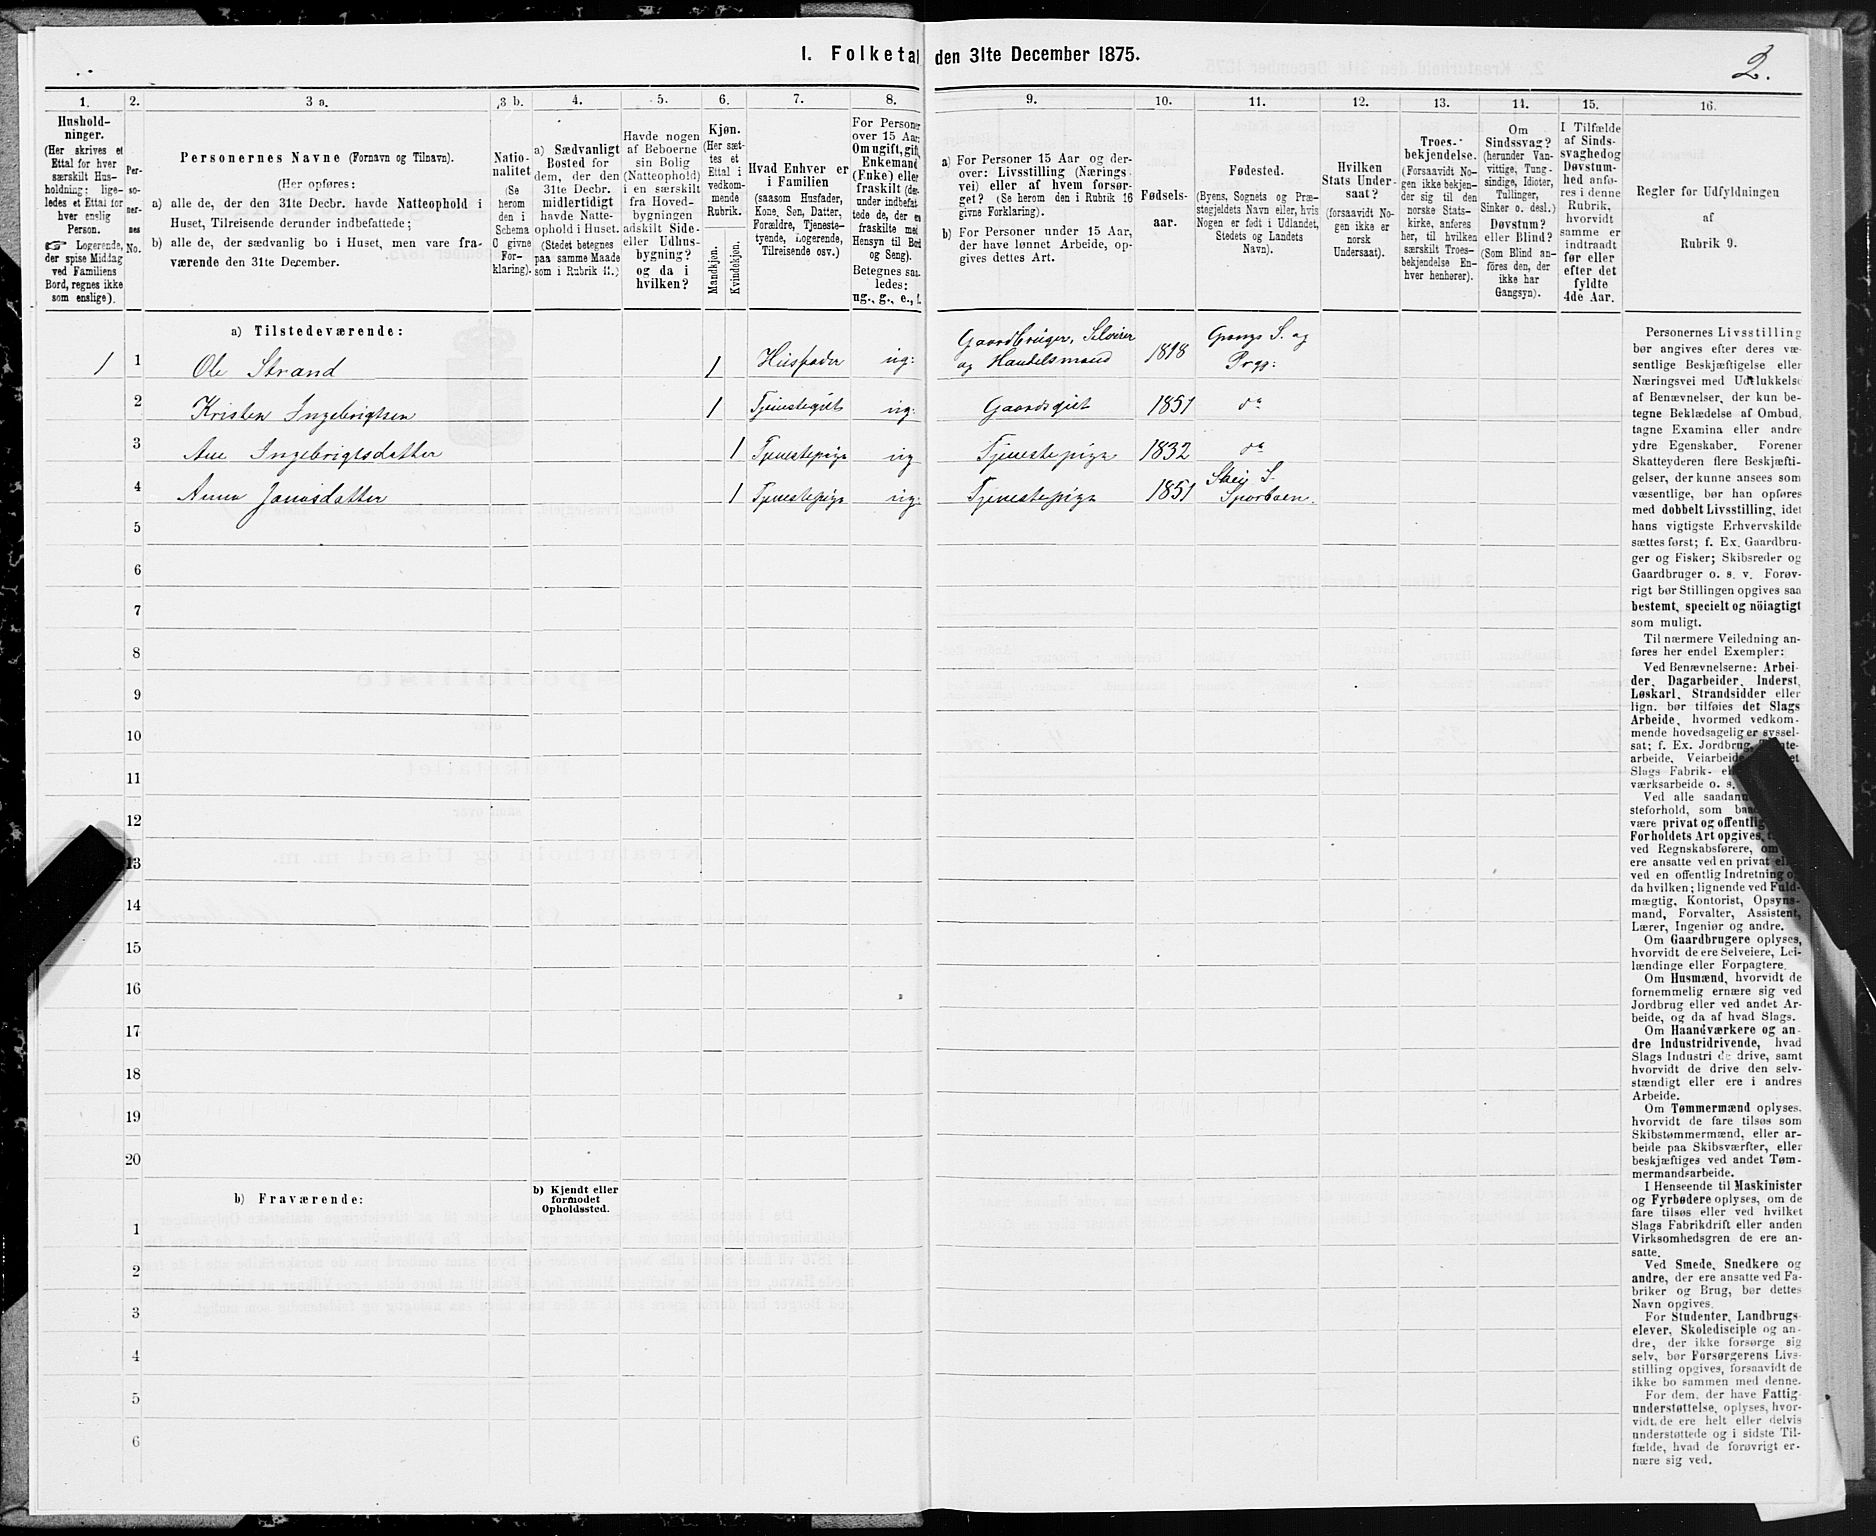 I. Folketal den 31te December 1875.
2.
1. 2. 3 a. 3 b. 4. 5. 6. 7. 8. 9. 10. 11. 12. 13. 14. 15. 16.
Hushold-
ninger.
(Her skrives et
Ettal for hver
særskilt Hus-
holdning; lige-
ledes et Ettal for
hver enslig
Person.
☞ Logerende,
der spise Middag
ved Familiens
Bord, regnes ikke
som enslige).
Per-
so-
ner-
nes
No.
Personernes Navne (Fornavn og Tilnavn).
(Her opføres:
a) alle de, der den 31te Decbr. havde Natteophold i
Huset, Tilreisende derunder indbefattede;
b) alle de, der sædvanlig bo i Huset, men vare fra-
værende den 31te December.
Natio-
nalitet
(Se
herom
den i
Schema
C givne
For-
klaring).
a) Sædvanligt
Bosted for
dem, der den
31te Decbr.
midlertidigt
havde Natte-
ophold i Huset.
(Stedet betegnes
paa samme Maade
som i Rubrik 11.)
Havde nogen
af Beboerne
sin Bolig
(Natteophold)
i en særskilt
fra Hoved-
bygningen
adskilt Side-
eller Udhus-
bygning?
og da i
hvilken?
Kjøn.
(Her sæt-
tes et
Ettal i
vedkom-
mende
Rubrik.
Mandkjøn.
Kvindekjøn.
Hvad Enhver er
i Familien
(saasom Husfader,
Kone, Søn, Datter,
Forældre, Tjeneste-
tyende, Logerende,
Tilreisende osv.)
For Personer
over 15 Aar:
Om ugift, gift,
Enkemand
(Enke) eller
fraskilt (der-
under indbefat-
tede de, der ere
fraskilte med
Hensyn til Bord
og Seng).
Betegnes saa-
ledes:
ug., g., e., f.
a) For Personer 15 Aar og der-
over: Livsstilling (Nærings-
vei) eller af hvem forsør-
get? (Se herom den i Rubrik 16
givne Forklaring).
b) For Personer under 15 Aar,
der have lønnet Arbeide, op-
gives dettes Art.
Fødsels-
aar.
Fødested.
(Byens, Sognets og Præ-
stegjeldets Navn eller, hvis
Nogen er født i Udlandet,
Stedets og Landets
Navn).
Hvilken
Stats Under-
saat?
(forsaavidt No-
gen ikke er
norsk
Undersaat).
Troes-
bekjendelse.
(Forsaavidt No-
gen ikke bekjen-
der sig til den
norske Stats-
kirke, anføres
her, til hvilken
særskilt Troes-
bekjendelse En-
hver henhører).
Om
Sindssvag?
(herunder Van-
vittige, Tung-
sindige, Idioter,
Tullinger,
Sinker o. desl.)
Døvstum?
eller Blind?
(Som Blind an-
føres den, der
ikke har
Gangsyn).
I Tilfælde
af Sinds-
svaghed og
Døvstum-
hed anfø-
res i denne
Rubrik,
hvorvidt
samme er
indtraadt
før eller
efter det
fyldte
4de Aar.
Regler for Udfyldningen
af
Rubrik 9.
a) Tilstedeværende:
1 1 Ole Strand 1 Husfader ug: Gaardbruger, Selveier og Handelsmand 1818 Grongs S. og Prgj:
2 Kristen Ingebrigtsen 1 Tjenestegut ug: Gaardsgut 1851 do
3 Ane Ingebrigtsdatter 1 Tjenestepige ug Tjenestepige 1832 do
4 Anna Jonasdatter 1 Tjenestepige ug: Tjenestepige 1851 S. Sparboen.
5
6
7
8
9
10
11
12
13
14
15
16
17
18
19
20
b) Fraværende:
b) Kjendt eller
formodet
Opholdssted.
1
2
3
4
5
6
Personernes Livsstilling
bør angives efter deres væ-
sentlige Beskjæftigelse eller
Næringsvei med Udelukkelse
af Benævnelser, der kun be-
tegne Beklædelse af Ombud,
tagne Examina eller andre
ydre Egenskaber. Forener
Skatteyderen flere Beskjæfti-
gelser, der kunne ansees som
væsentlige, bør han opføres
med dobbelt Livsstilling, idet
hans vigtigste Erhvervskilde
sættes først; f. Ex. Gaardbru-
ger og Fisker; Skibsreder og
Gaardbruger o. s. v. Forøv-
rigt bør Stillingen opgives saa
bestemt, specielt og nöiagtigt
som muligt.
Til nærmere Veiledning an-
føres her endel Exempler:
Ved Benævnelserne: Arbei-
der, Dagarbeider, Inderst,
Løskarl, Strandsidder eller
lign. bør tilføies det Slags
Arbeide, hvormed vedkom-
mende hovedsagelig er syssel-
sat; f. Ex. Jordbrug,
arbeide, Veiarbeide
Slags Fabrik-
værksarbeide o. s.
Ved alle saadan
steforhold, som
være privat og offentlig
Forholdets Art opgives,
ved Regnskabsførere, om
ere ansatte ved en privat
ved en offentlig Indretning
da hvilken; lignende ved Fuld-
mægtig, Kontorist, Opsyns-
mand, Forvalter, Assistent,
Lærer, Ingeniør og andre.
Om Gaardbrugere oplyses,
hvorvidt de ere Selveiere, Lei-
lændinge eller Forpagtere.
Om Husmænd, hvorvidt de
fornemmelig ernære sig ved
Jordbrug eller ved andet Ar-
beide, og da af hvad Slags.
Om Haandværkere og an-
dre Industridrivende, hvad
Slags Industri de drive, samt
hvorvidt de drive den selv-
stændigt eller ere i andres
Arbeide.
Om Tømmermænd oplyses,
hvorvidt de fare tilsøs som
Skibstømmermænd, eller ar-
beide paa Skibsværfter, eller
beskjæftiges ved andet Tøm-
mermandsarbeide.
I Henseende til Maskinister
og Fyrbødere oplyses, om de
fare tilsøs eller ved hvilket
Slags Fabrikdrift eller anden
Virksomhedsgren de ere an-
satte.
Ved Smede, Snedkere og
andre, der ere ansatte ved Fa-
briker og Brug, bør dettes
Navn opgives.
For Studenter, Landbrugs-
elever, Skoledisciple og an-
dre, der ikke forsørge sig
selv, bør Forsørgerens Livs-
stilling opgives, forsaavidt de
ikke bo sammen med denne.
For dem, der have Fattig-
understøttelse, oplyses, hvor-
vidt de ere helt eller delvis
understøttede og i sidste Til-
fælde, hvad de forøvrigt er-
nære sig ved.